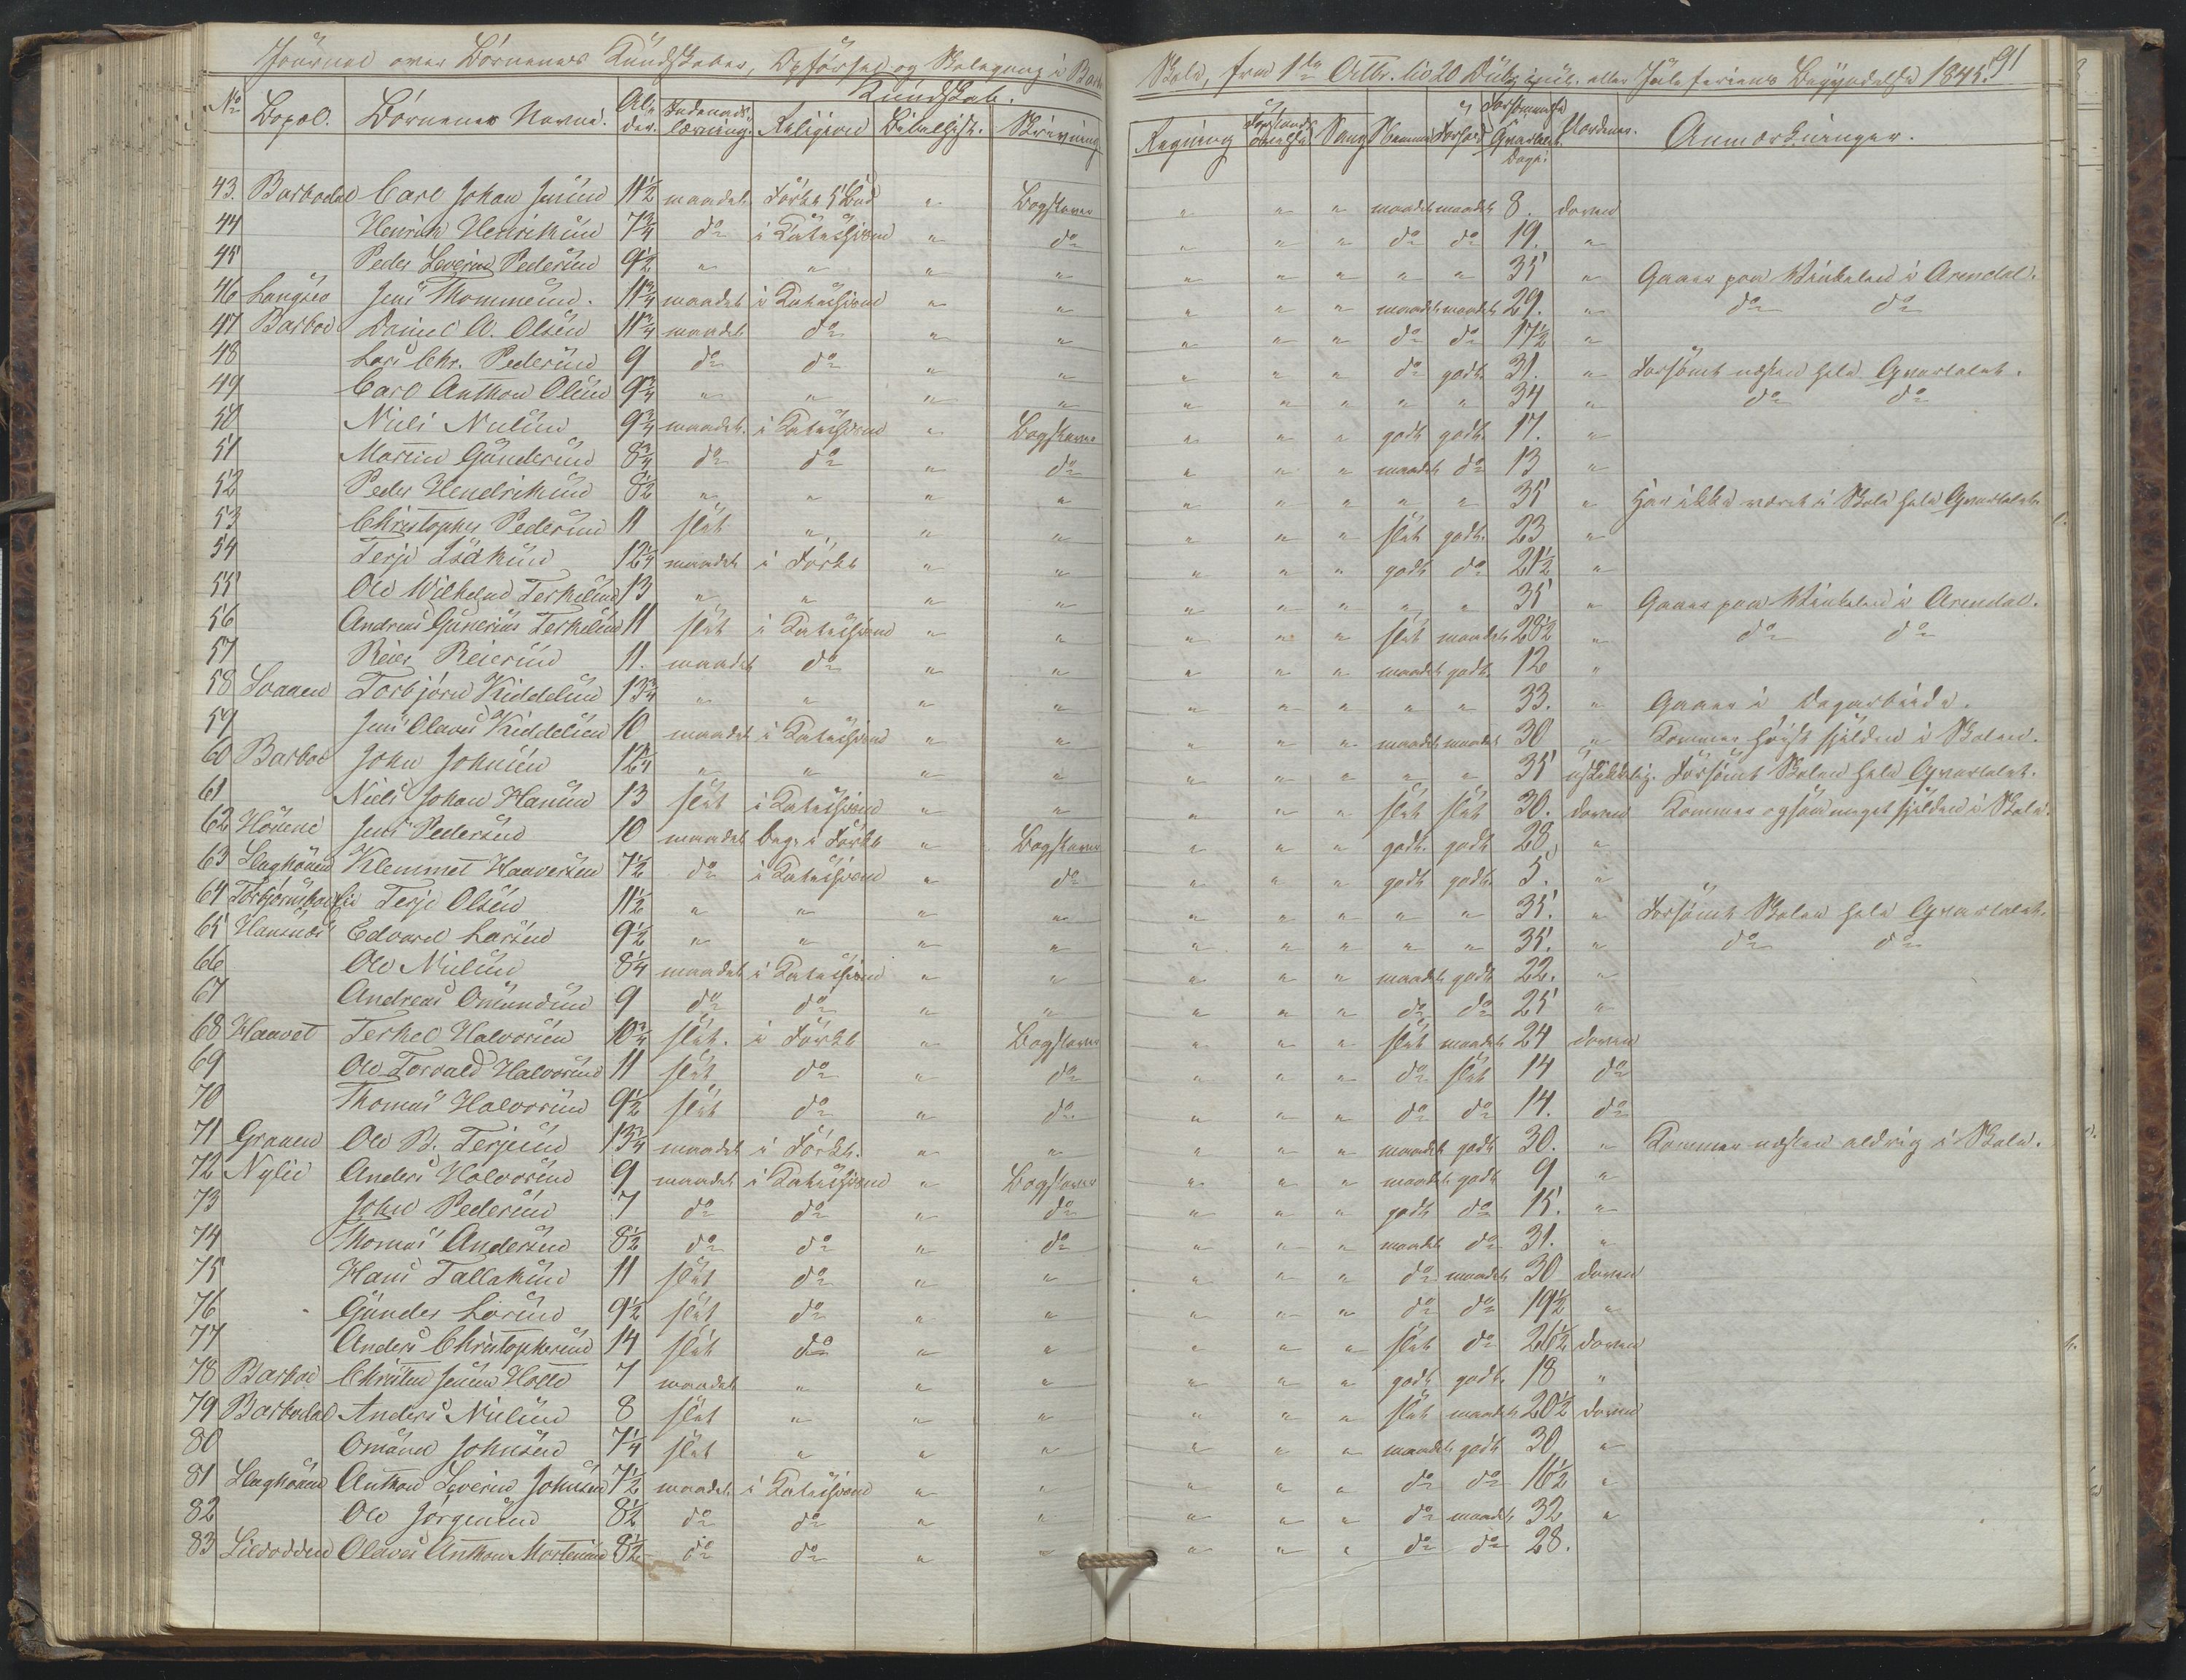 Journal over Börnenes Kundskaber, Opförsel og Skolegang i Barbo Skole, fra 1ste Octbr. til 20 Dcbr. eller Jule feriens Begyndelse 1845. 91
Kundskab.
No Bopæl. Börnenes Navne. Alder. Indenadslæsning. Religion Bibelhist. Skrivning Regning Forstandsövelse Sang Nemme Forhold Forsömmelse i Qvartalet Dage. Anmærkninger.
43. Barbodal Carl Johan Jensen 11½ maadel. Forkl. 5 Bud " Bogstaver " " " maadel. maadel. 8. doven
44 Henrik Henriksen 7¾ do i Katechismen " do " " " do do 19. "
45 Peder Severin Pedersen 9½ " " " " " " " " " 35 " Gaaer paa Vinkelen i Arendal.
46 Langsev Jens Thommesen. 11¾ maadel. i Katechismen " " " " " maadel. maadel. 29. " do do
47 Barboe Daniel A. Olsen 11¾ maadel. do " " " " " do do 17½ "
48 Lars Chr. Pedersen 9 do do " " " " " do godt. 31. " Forsömt næsten hele Qvartalet.
49 Carl Anthon Olsen 9¾ " " " " " " " " " 34 " do do
50 Niels Nielsen 9¾ maadel. i Katechismen " Bogstaver " " " godt godt. 17. "
51 Marius Gundersen 8¾ do do " do " " " maadel. do 13 "
52 Peder Hendriksen 8½ " " " " " " " " " 35 " Har ikke været i Skole hele Qvartalet.
53 Christopher Pedersen 11 slet " " " " " " slet godt. 23 "
54 Terje Isaksen 12¼ maadel. i Forkl. " " " " " godt do 21½ "
55 Ole Wilhelm Terkelsen 13 " " " " " " " " " 35 " Gaaer paa Vinkelen i Arendal.
56 Andreas Gunerius Terkelsen 11 slet i Katechismen " " " " " slet maadel. 28½ " do do
57 Reier Reiersen 11. maadel. do " " " " " maadel. godt. 12 "
58 Loaaen Torbjörn Kiddelsen 13¾ " " " " " " " " " 33. " Gaaer i Dagarbeide.
59 Jens Olaves Kiddelsen 10 maadel. i Katechismen " " " " " maadel. maadel. 30 " Kommer höist sjelden i Skolen.
60 Barboe John Johnsen 12¼ " " " " " " " " " 35 uskikkelig. Forsömt Skolen hele Qvartalet.
61 Niels Johan Hansen 13 slet i Katechismen " " " " " slet slet 30. doven Kommer ogsaa meget sjelden i Skole.
62 Jens Pedersen 10 maadel. beg. i Forkl. " Bogstaver " " " godt. godt 28. "
63 Klemmet Haaversen 7½ do i Katechismen " do " " " godt godt. 5. "
64 Terje Olsen 11½ " " " " " " " " " 35. " Forsömt Skolen hele Qvartalet.
65 Hansnæs Edvard Larsen 9½ " " " " " " " " " 35. " do do
66 Ole Nielsen 8¼ maadel. i Katechismen " " " " " maadel. godt 22. "
67 Andreas Omundsen 9 do do " " " " " do do 25 "
68 Haavet Terkel Halvorsen 10¾ slet. i Forkl. " Bogstaver " " " slet maadel. 24 doven
69 Ole Torvald Halvorsen 11 slet do " do " " " do slet 14 do
70 Thomas Halvorsen 9½ slet do " do " " " do do 14. do
71 Graaen Ole B. Terjesen 13¾ maadel. i Forkl. " " " " " maadel. godt 30. " Kommer næsten aldrig i Skole.
72 Nylie Anders Halvorsen 9 maadel. i Katechismen " Bogstaver " " " maadel. godt 9 "
73 John Pedersen 7 do do " do " " " godt do 15. "
74 Thomas Andersen 8½ do do " do " " " maadel. do 31. "
75 Hans Tallaksen 11 slet do " " " " " do maadel. 30 doven
76 Gunder Larsen 9½ slet do " " " " " do do 19½ "
77 Anders Christophersen 14 slet do " " " " " slet do 26½ doven
78 Barboe Christen Jensen Holte 7 maadel. " " " " " " godt godt. 18 "
79 Barbodal Anders Nielsen 8 slet " " " " " " slet maadel. 20½ doven
80 Omund Johnsen 7¼ slet " " " " " " maadel. godt 30 "
81 Anthon Severin Johnsen 7½ maadel. i Katechismen " " " " " do do 16½ "
82 Ole Jörgensen 8½ do do " " " " " do maadel. 32 "
83 Sildodden Olaves Anthon Mortensen 8½ do do " " " " " do do 28.